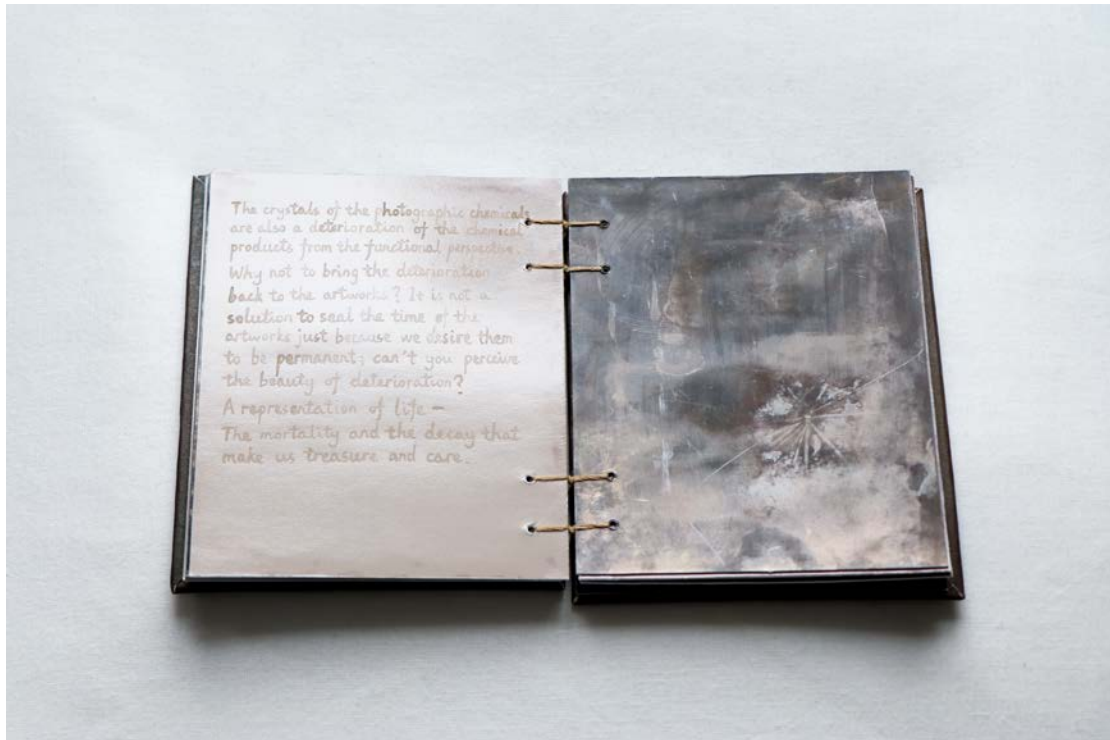 The crystals of the photographic chemicals
are also a deterioration of the chemical
products from the functional perspective.
Why not to bring the deterioration
back to the artworks? It is not a
solution to seal the time of the
artworks just because we desire them
to be permanent; can't you perceive
the beauty of deterioration?
A representation of life –
The mortality and the decay that
make us treasure and care.